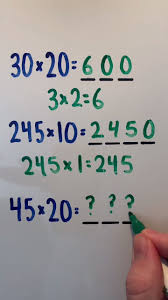 30×20=600
3×2=6
245×10=2450
245×1=245
45×20=???